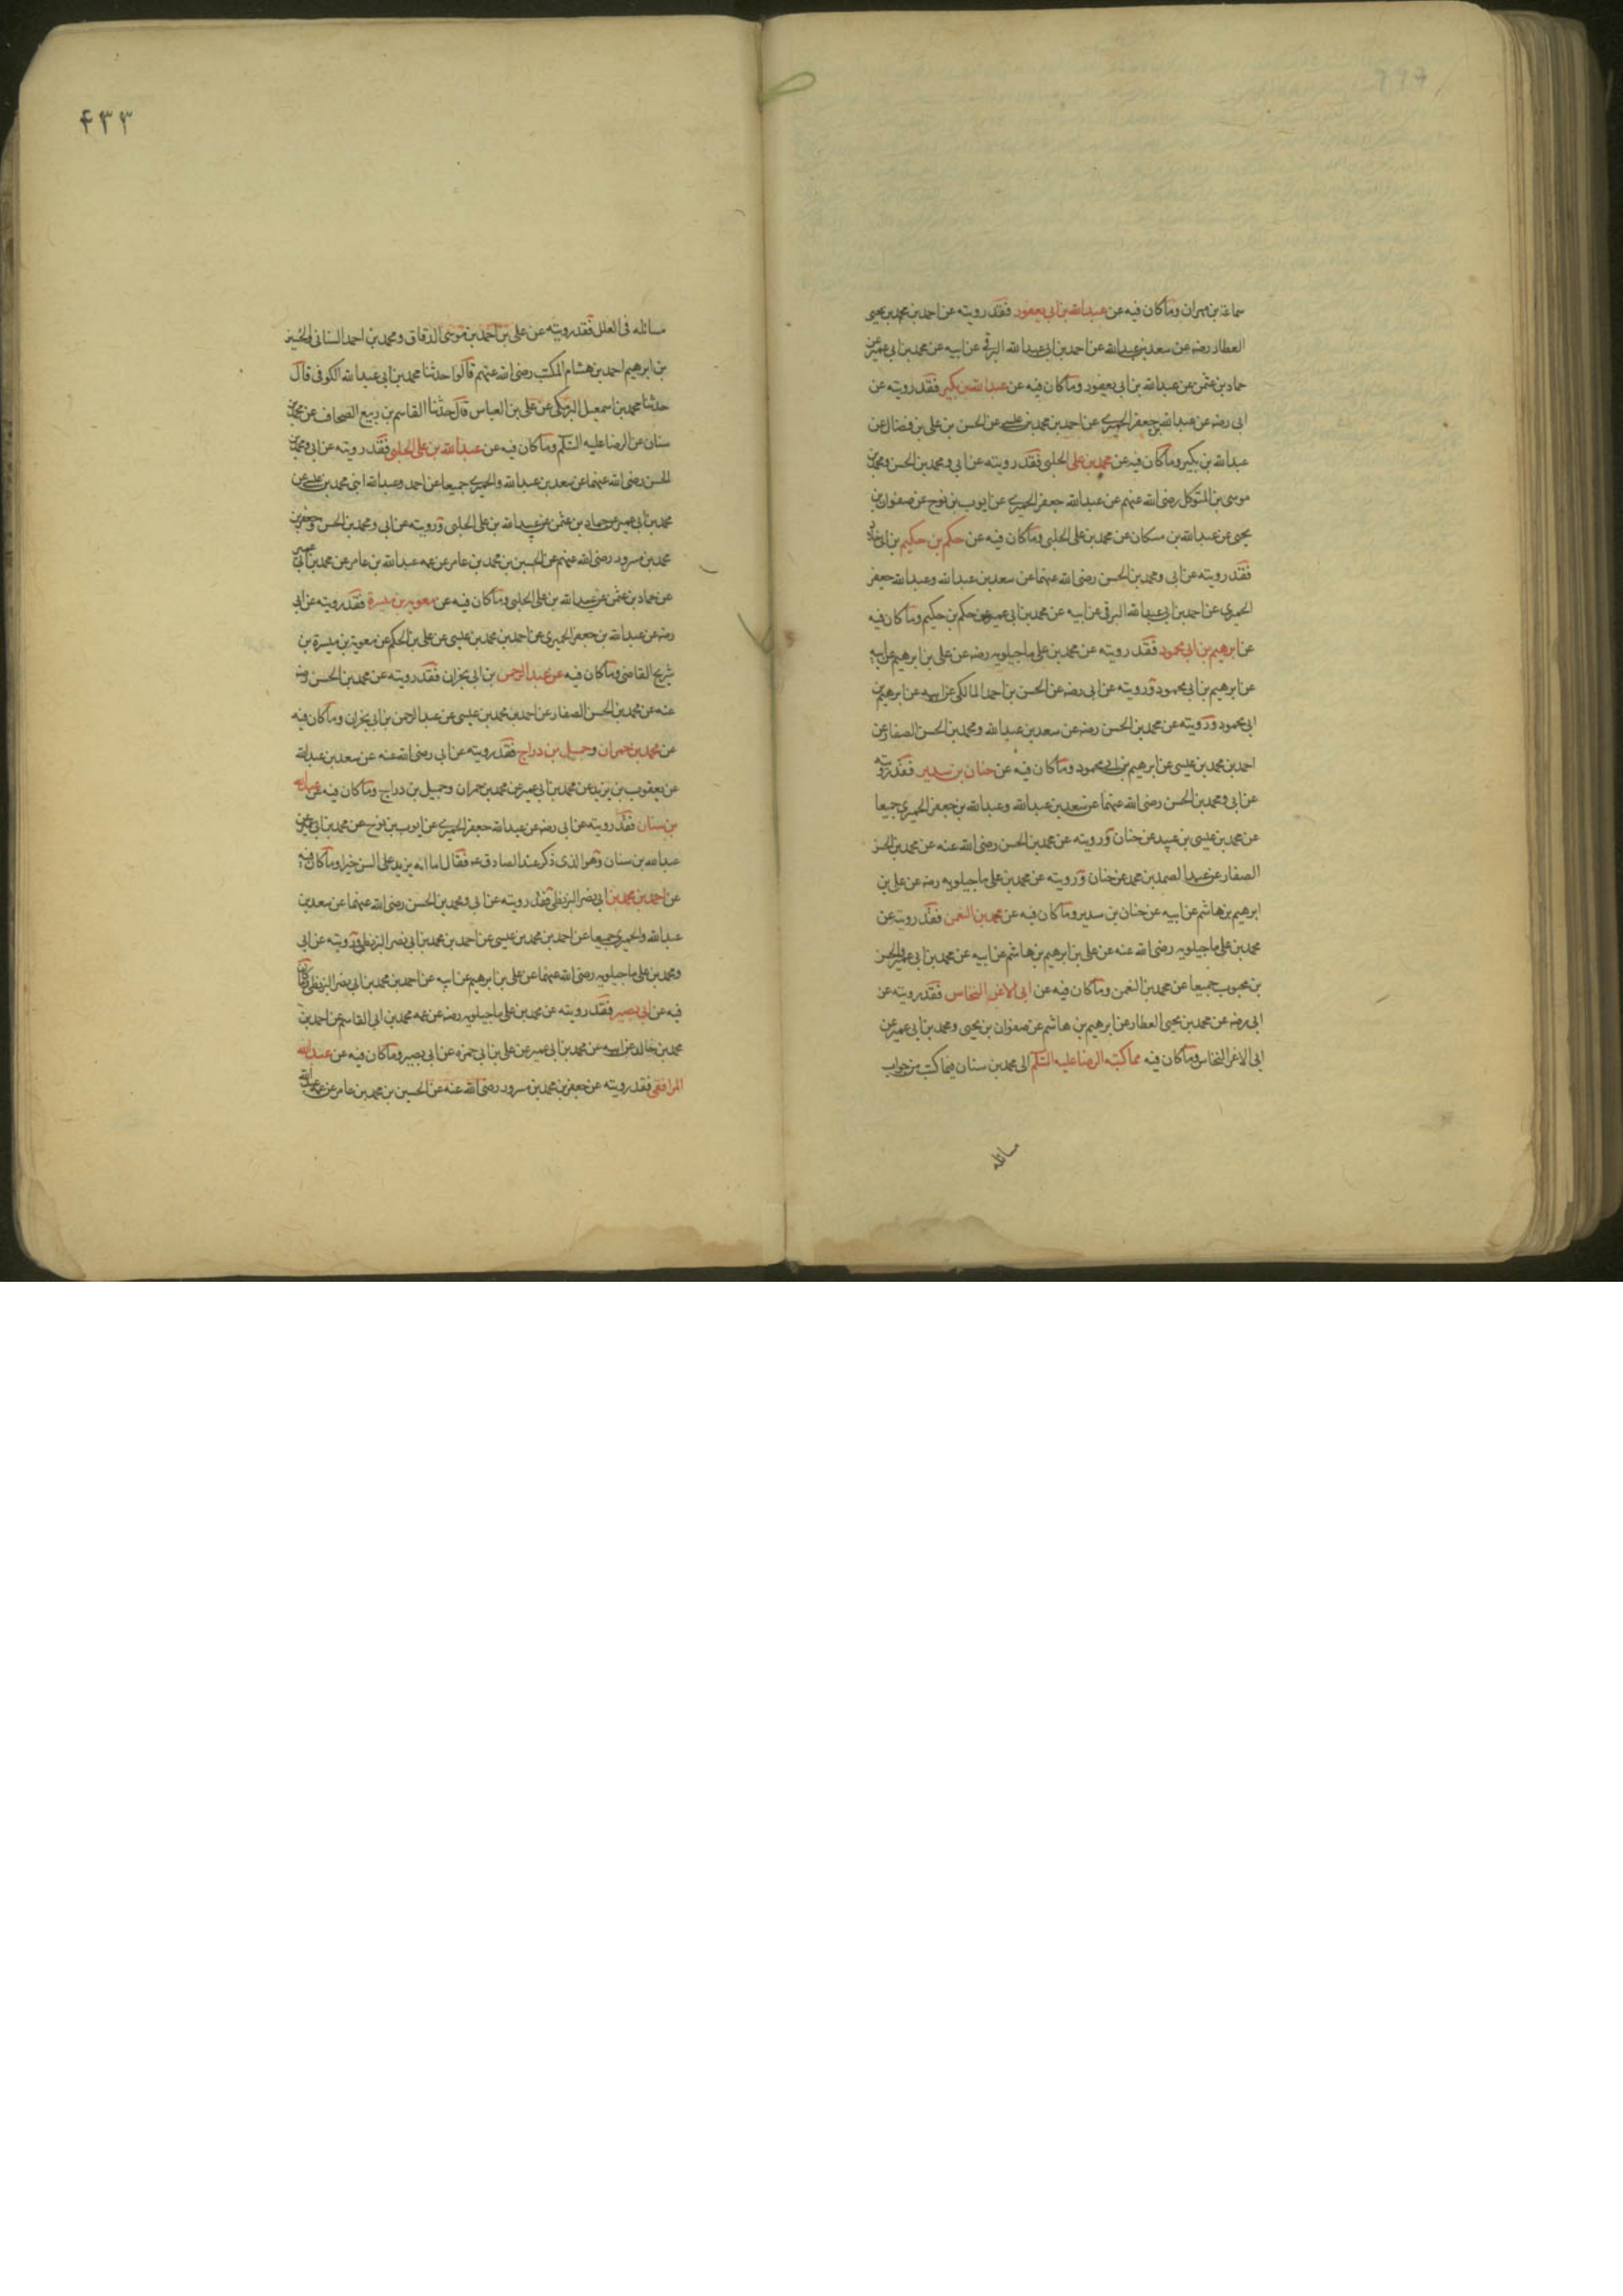 سماعة بن مهران وما كان فيه عن عبدالله بن ابى يعفور فقد رويته عن احمد بن محمد بن يحيى
العطار رضه عن سعد بن عبدالله عن احمد بن ابى عبدالله البرقى عن ابيه عن محمد بن ابى عمير عن
حماد بن عثمن عن عبدالله بن ابى يعفور وما كان فيه عن عبدالله بن بكير فقد رويته عن
ابى رضه عن عبدالله بن جعفر الحميرى عن احمد بن محمد بن عيسى عن الحسن بن على بن فضال عن
عبدالله بن بكير وما كان فيه عن محمد بن على الحلبى فقد رويته عن ابى ومحمد بن الحسن ومحمد بن
موسى بن المتوكل رضى الله عنهم عن عبدالله جعفر الحميرى عن ايوب بن نوح عن صفوان بن
يحيى عن عبدالله بن مسكان عن محمد بن على الحلبى وما كان فيه عن حكم بن حكيم بن اخى خلاد
فقد رويته عن ابى ومحمد بن الحسن رضى الله عنهما عن سعد بن عبدالله وعبدالله جعفر
الحميرى عن احمد بن ابى عبدالله البرقى عن ابيه عن محمد بن ابى عمير عن حكم بن حكيم وما كان فيه
عن ابرهيم بن ابى محمود فقد رويته عن محمد بن على ماجيلويه رضه عن على بن ابرهيم عن ابيه
عن ابرهيم بن ابى محمود ورويته عن ابى رضه عن الحسن بن احمد المالكى عن ابيه عن ابرهيم بن
ابى محمود ورويته عن محمد بن الحسن رضه عن سعد بن عبدالله ومحمد بن الحسن الصفار عن
احمد بن محمد بن عيسى عن ابرهيم بن ابى محمود وما كان فيه عن حنان بن سدير فقد رويته
عن ابى ومحمد بن الحسن رضى الله عنهما عن سعد بن عبدالله وعبدالله بن جعفر الحميرى جميعا
عن محمد بن عيسى بن عبيد عن حنان ورويته عن محمد بن الحسن رضى الله عنه عن محمد بن الحسن
الصفار عن عبد الصمد بن محمد عن حنان ورويته عن محمد بن على ماجيلويه رضه عن على بن
ابرهيم بن هاشم عن ابيه عن حنان بن سدير وما كان فيه عن محمد بن النعمن فقد رويته عن
محمد بن على ماجيلويه رضى الله عنه عن على بن ابرهيم بن هاشم عن ابيه عن محمد بن ابى عمير والحسن
بن محبوب جميعا عن محمد بن النعمن وما كان فيه عن ابى الاغر النخاس فقد رويته عن
ابى رضه عن محمد بن يحيى العطار عن ابرهيم بن هاشم عن صفوان بن يحيى ومحمد بن ابى عمير عن
ابى الاغر النخاس وما كان فيه مما كتبه الرضا عليه السلم الى محمد بن سنان فيما كتب من جواب
مسائله
۴۳۳
مسائله فى العلل فقد رويته عن على بن احمد بن موسى الدقاق ومحمد بن احمد السنانى والحسين
بن ابرهيم احمد بن هشام المكتب رضى الله عنهم قالوا حدثنا محمد بن ابى عبدالله الكوفى قال
حدثنا محمد بن اسمعيل البرمكى عن على بن العباس قال حدثنا القاسم بن ربيع الصحاف عن محمد بن
سنان عن الرضا عليه السلم وما كان فيه عن عبدالله بن على الحلبى فقد رويته عن ابى ومحمد بن
الحسن رضى الله عنهما عن سعد بن عبدالله والحميرى جميعا عن احمد وعبدالله ابنى محمد بن عيسى عن
محمد بن ابى عمير عن حماد بن عثمن عن عبيدالله بن على الحلبى ورويته عن ابى ومحمد بن الحسن وجعفر بن
محمد بن مسرور رضى الله عنهم عن الحسين بن محمد بن عامر عن عمه عبدالله بن عامر عن محمد بن ابى عمير
عن حماد بن عثمن عن عبيدالله بن على الحلبى وما كان فيه عن معوية بن ميسرة فقد رويته عن ابى
رضه عن عبدالله بن جعفر الحميرى عن احمد بن محمد بن عيسى عن على بن الحكم عن معوية بن ميسرة بن
شريح القاضى وما كان فيه عن عبد الرحمن بن ابى نجران فقد رويته عن محمد بن الحسن رضه
عنه عن محمد بن الحسن الصفار عن احمد بن محمد بن عيسى عن عبد الرحمن بن ابى نجران وما كان فيه
عن محمد بن حمران وجميل بن دراج فقد رويته عن ابى رضى الله عنه عن سعد بن عبدالله
عن يعقوب بن يزيد عن محمد بن ابى عمير عن محمد بن حمران وجميل بن دراج وما كان فيه عن عبدالله
بن سنان فقد رويته عن ابى رضه عن عبدالله جعفر الحميرى عن ايوب بن نوح عن محمد بن ابى عمير عن
عبدالله بن سنان وهو الذى ذكر عند الصادق ع فقال اما انه يزيد على السن خيرا وما كان فيه
عن احمد بن محمد بن ابى نصر البزنطى فقد رويته عن ابى ومحمد بن الحسن رضى الله عنهما عن سعد بن
عبدالله والحميرى جميعا عن احمد بن محمد بن عيسى عن احمد بن محمد بن ابى نصر البزنطى ورويته عن ابى
ومحمد بن على ماجيلويه رضى الله عنهما عن على بن ابرهيم عن ابيه عن احمد بن محمد بن ابى نصر البزنطى وما كان
فيه عن ابى بصير فقد رويته عن محمد بن على ماجيلويه رضه عن عمه محمد بن ابى القاسم عن احمد بن
محمد بن خالد عن ابيه عن محمد بن ابى عمير عن على بن ابى حمزه عن ابى بصير وما كان فيه عن عبيدالله
المرافقى فقد رويته عن جعفر بن محمد بن مسرور رضى الله عنه عن الحسين بن محمد بن عامر عن عمه عبدالله